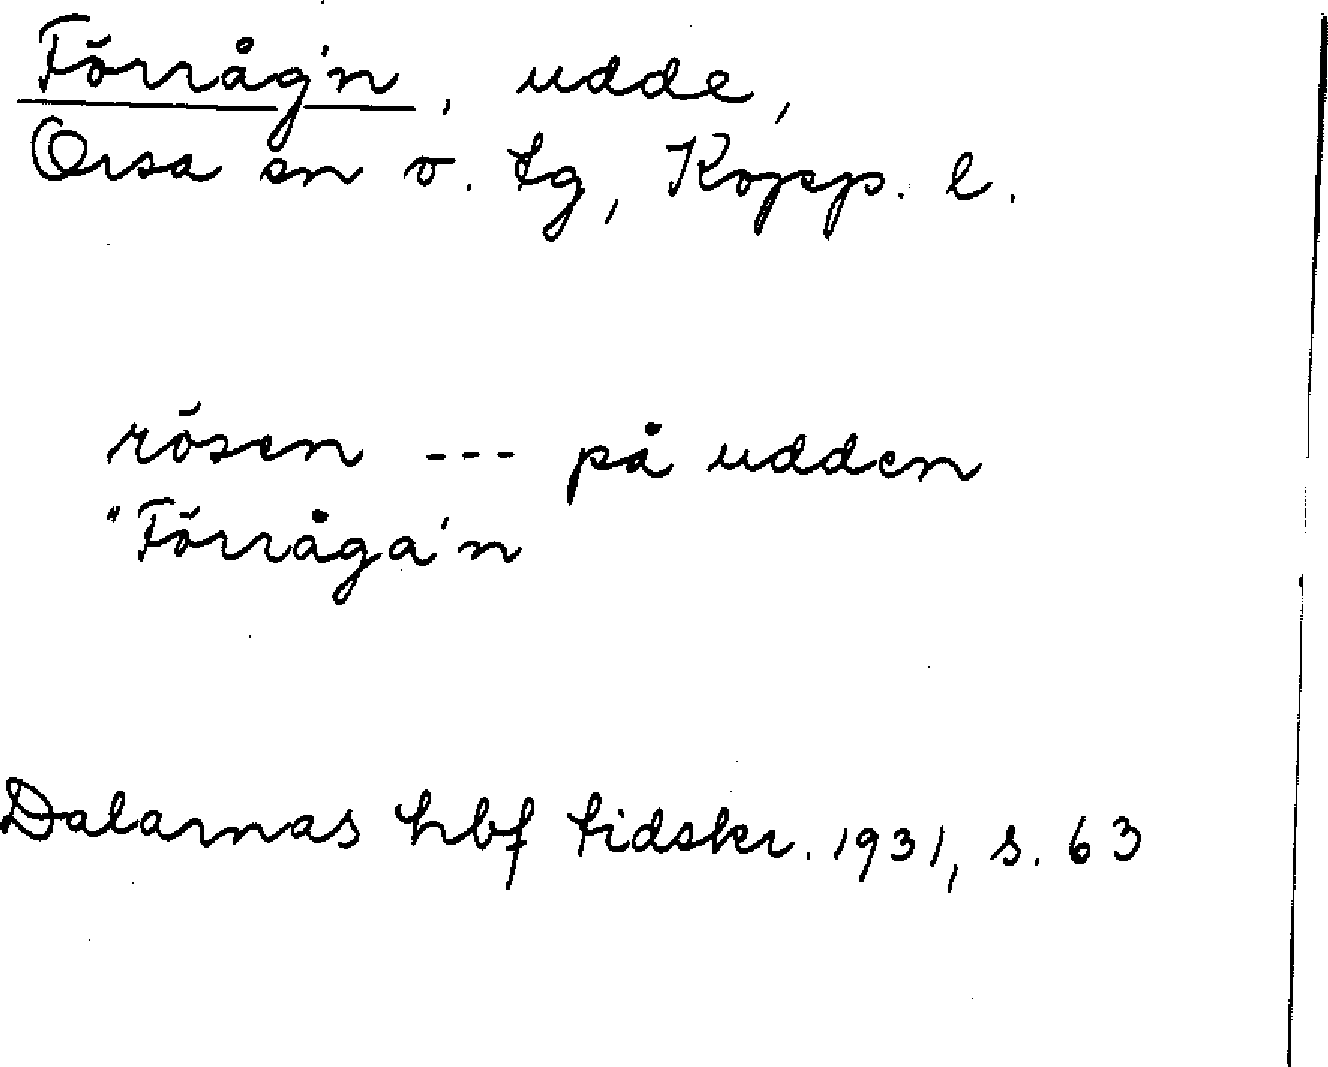 Förråg'n, udde,
Orsa sn o. tg, Kopp. l.
rösen --- på udden
"Förråga'n
Dalarnas hbf tidskr. 1931, s. 63